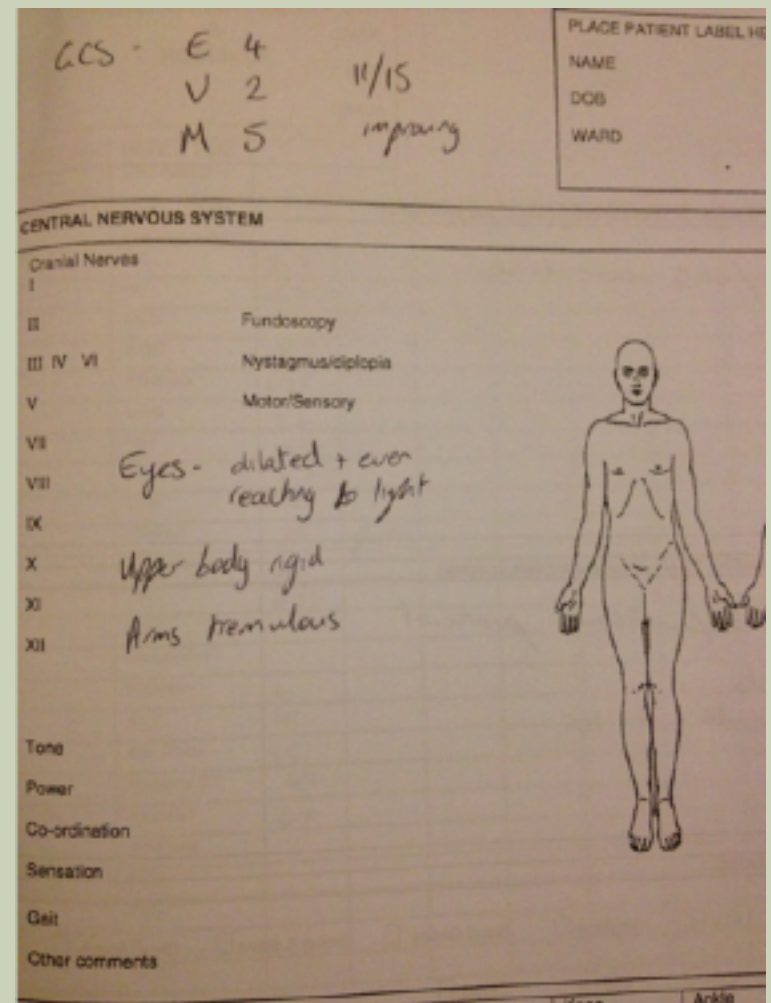 GCS - E 4
V 2 11/15
M 5 improving
PLACE PATIENT LABEL HE
NAME
DOB
WARD
CENTRAL NERVOUS SYSTEM
Cranial Nerves
I
II Fundoscopy
III IV VI Nystagmus/diplopia
V Motor/Sensory
VII
Eyes - dilated + even
VIII
reacting to light
IX
X Upper body rigid
XI Arms tremulous
XII
Tone
Power
Co-ordination
Sensation
Gait
Other comments
Ankle